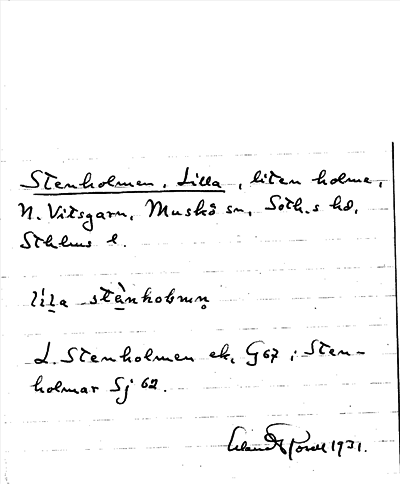 Stenholmen, Lilla, liten holme,
N. Vitsgarn, Muskö sn, Soth.s hd,
Sthlms l.
lila stènholmn̥
L. Stenholmen ek. G67; Sten-
holmar Sj 62.
1931.